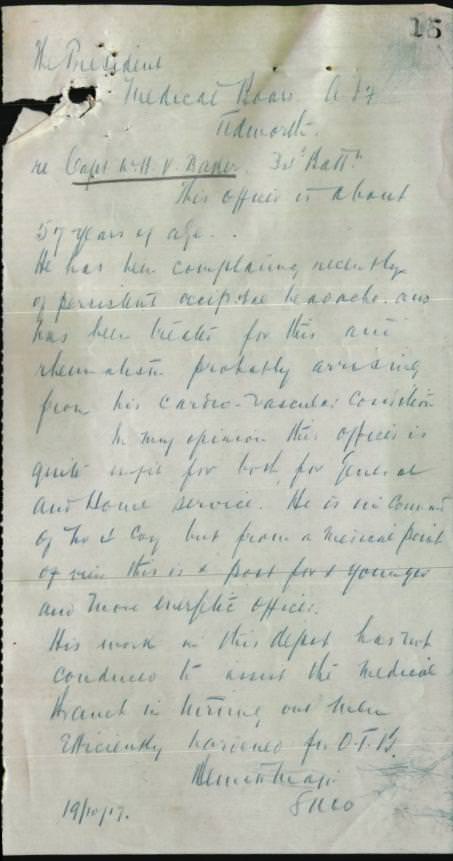 15
The President
Medical Board A.I.F
Tidworth.
re Capt W.H.V. Baker. 3rd Battn
This officer is about
57 years of age.
He has been complaining recently
of persistent occipital headache and
has been treated for this and
rheumatism probably arising
from his cardio-vascular condition
In my opinion this officer is
quite unfit for both for General
and Home service. He is in command
of No 2 Coy but from a medical point
of view this is a post for a younger
and more energetic officer.
His work in this depot has not
conduced to assist the medical
branch in turning out men
efficiently hardened for O.T.B.
SMO
19/10/17.